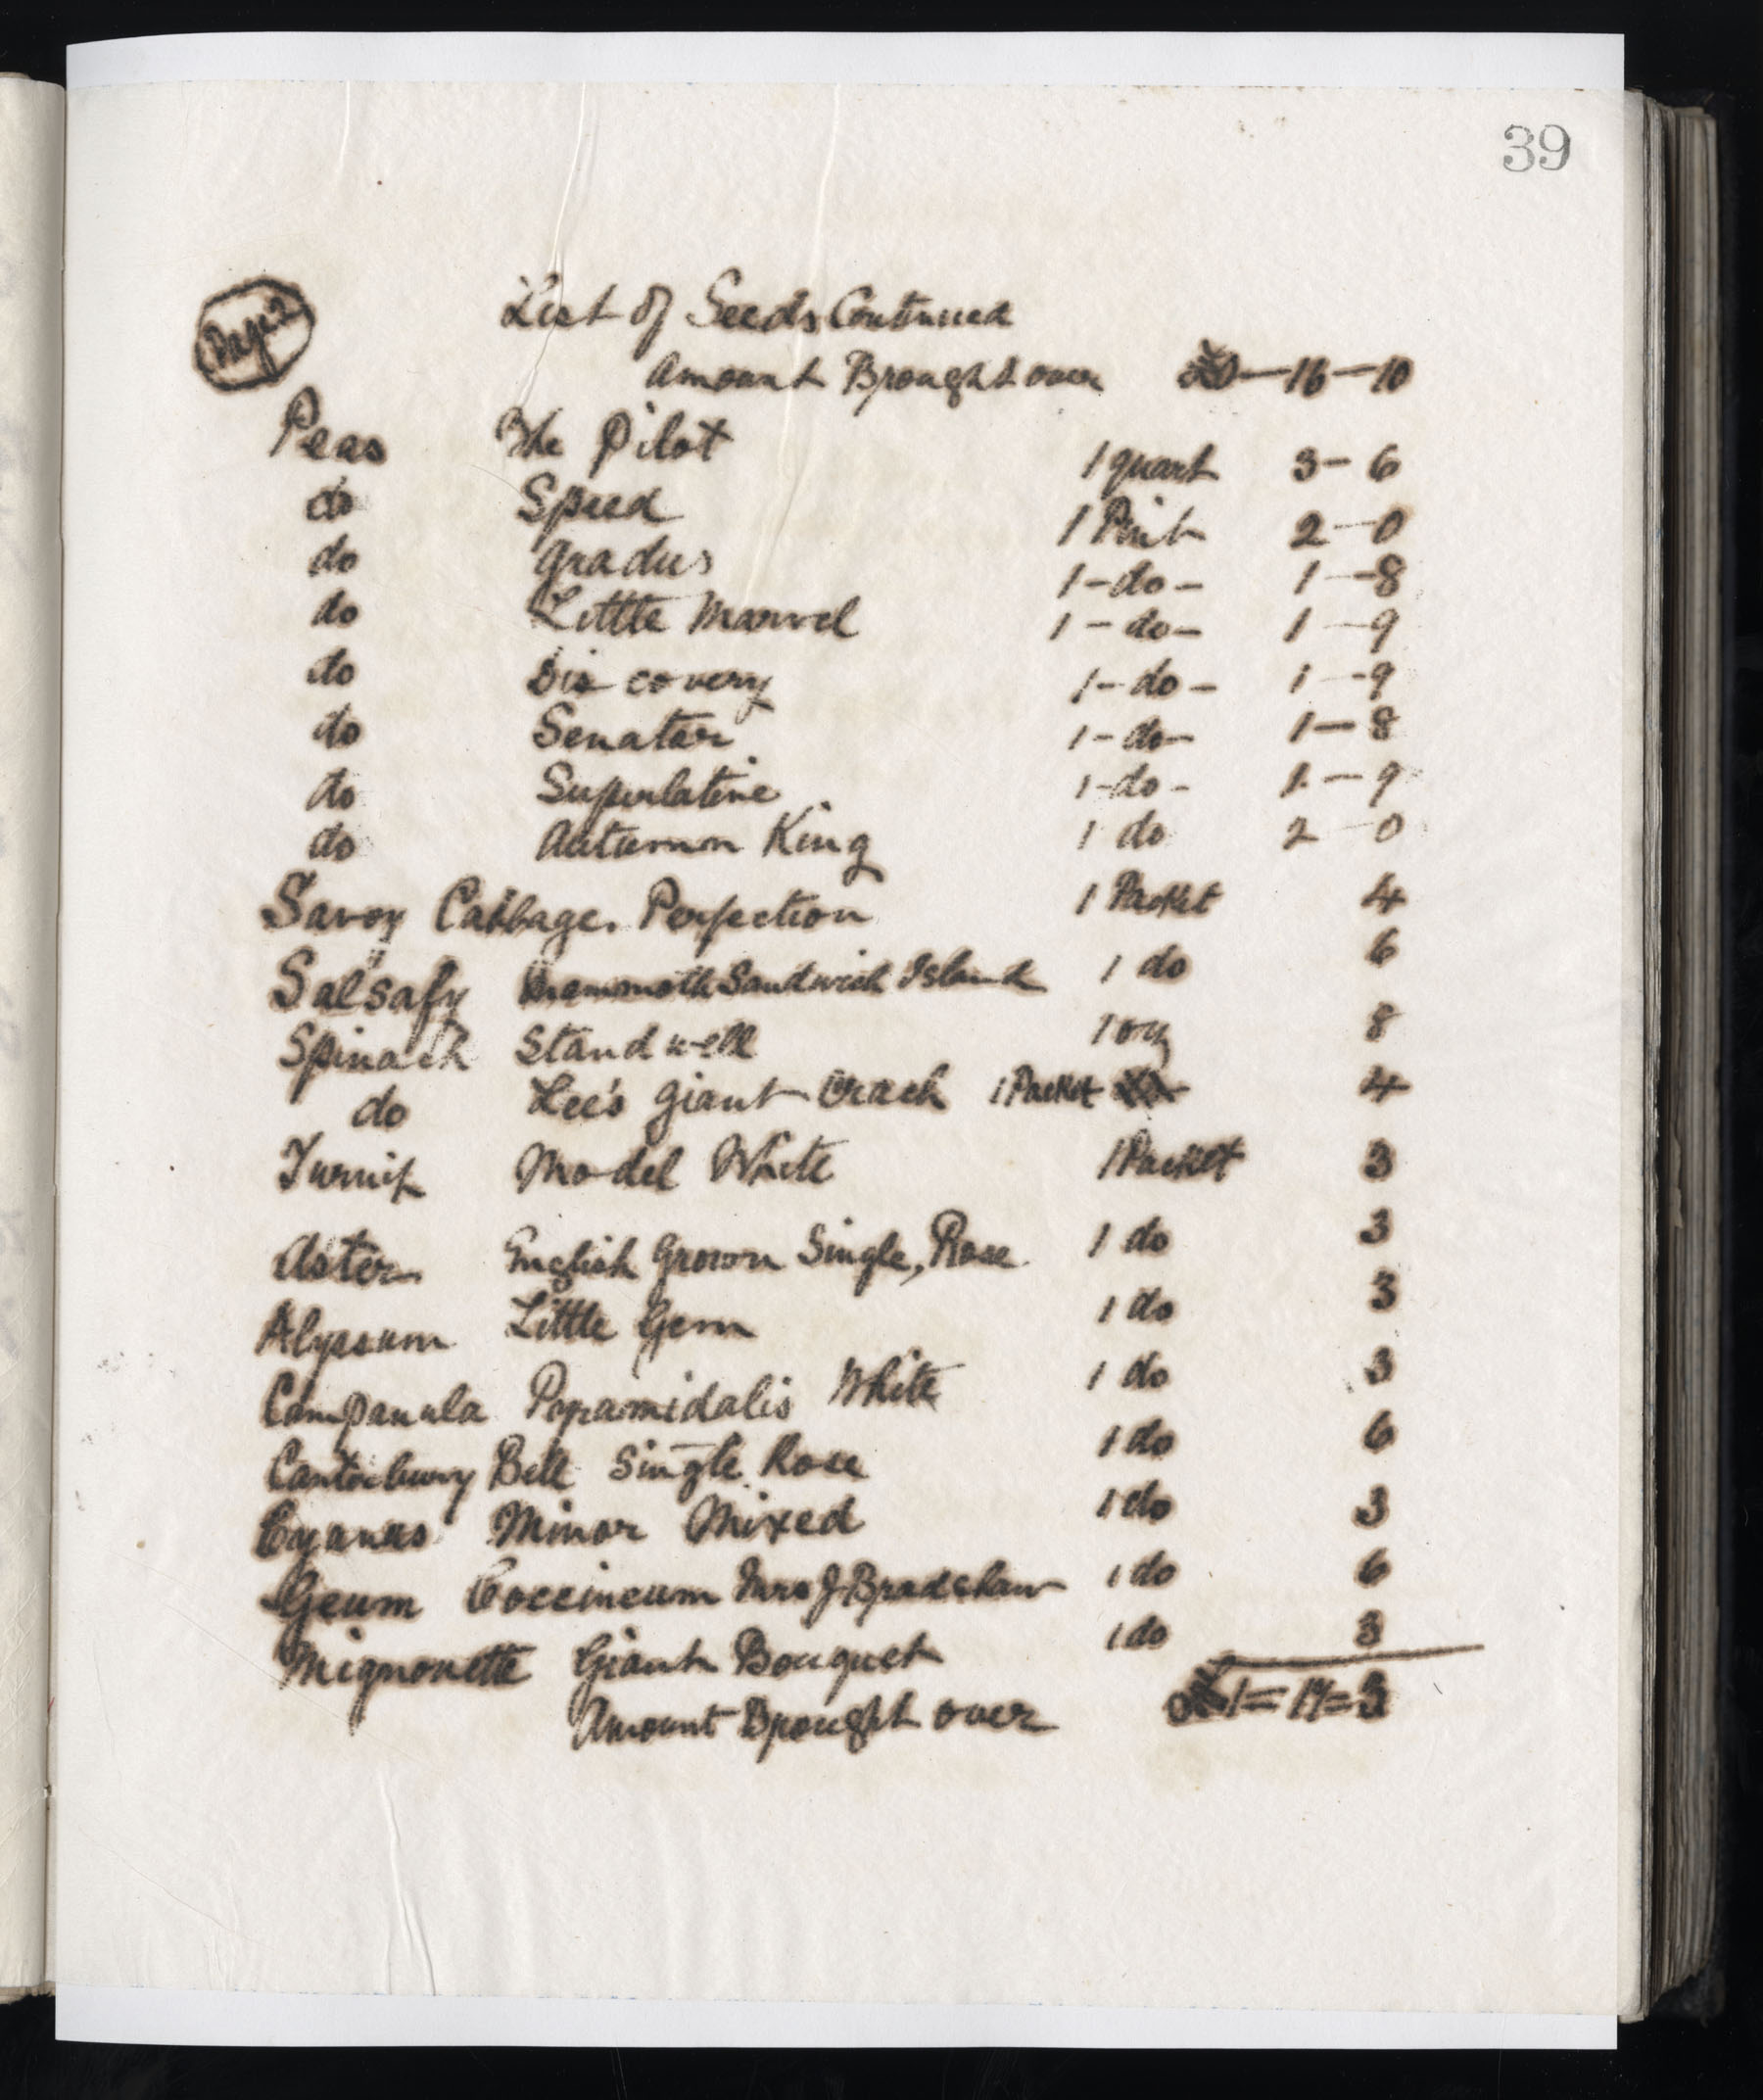 39
Page 2
List of Seeds Continued
Amount Brought over £0-16-10
Peas The Pilot 1 quart 3-6
do Speed 1 Pint 2-0
do Gradus 1-do- 1-8
do Little Marvel 1-do- 1-9
do Discovery 1-do- 1-9
do Senator 1-do- 1-8
do Superlative 1-do- 1-9
do Autumn King 1 do 2-0
Savoy Cabbage. Perfection 1 Packet 4
Salsafy Mammoth Sandwich Island 1 do 6
Spinach Standwell 1 oz 8
do Lee's Giant Orach 1 Packet 4
Turnip Model White 1 Packet 3
Aster English Grown Single, Rose 1 do 3
Alyssum Little Gem 1 do 3
Campanula Pyramidalis White 1 do 3
Canterbury Bell Single Rose 1 do 6
Cyanus Minor Mixed 1 do 3
Geum Coccineum Mrs J Bradshaw 1 do 6
Mignonette Giant Bouquet 1 do 3
Amount Brought over £1=17=3